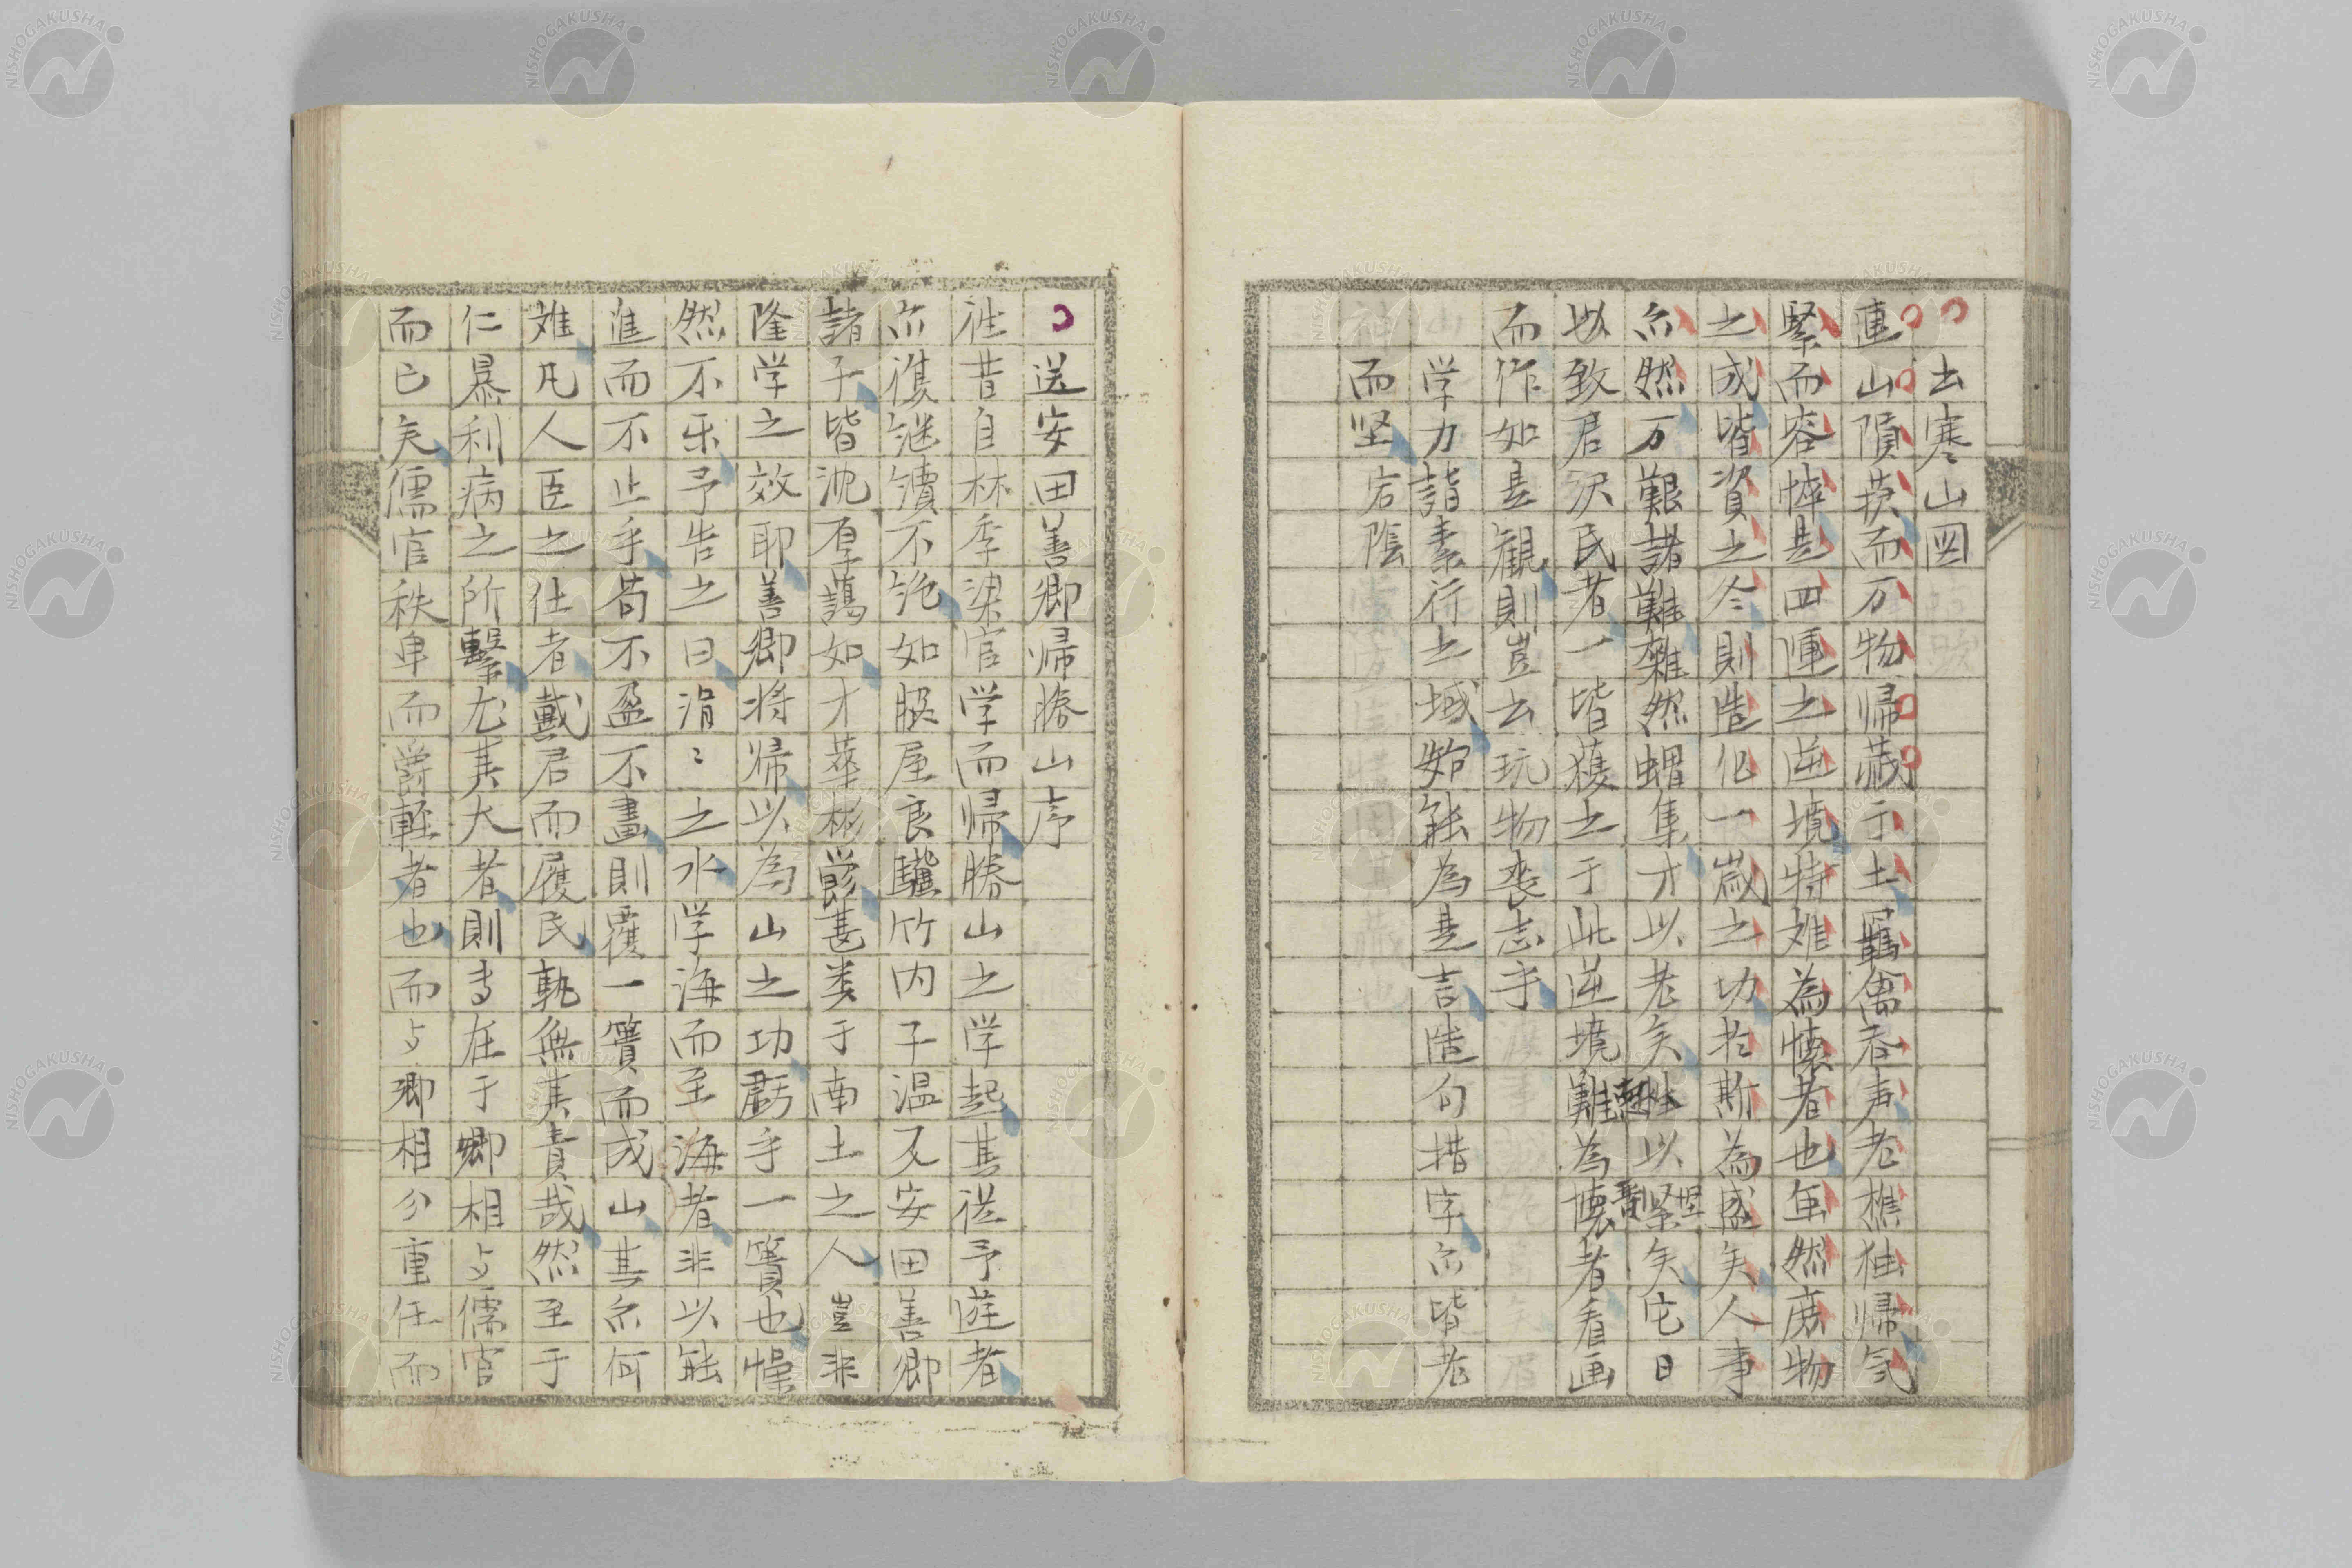 去寒山図
連山隕蘀而万物帰蔵于土羈禽呑声老樵独帰気
緊而容悴是四運之逆境特难為懐者也雖然庶物
之成皆資之冬則造化一歳之功於斯為盛矣人事
亦然万艱諸難雜然蝟集才以老矣以堅矣它日
以致君沢民者一皆獲之于此逆境難為懐者看画
而作如是観則豈云玩物喪志乎
学力詣素行之域始能為是言造句措字亦皆老
而坚 宕陰
送安田善卿帰勝山序
往昔自林季梁官学而帰勝山之学起其従予遊者
亦復継續不絶如股屋良驥竹内子温又安田善卿
諸子皆沈厚藹如才華彬彬甚类于南土之人豈非
隆学之效耶善卿将帰以為山之功虧乎一簣也慢
然不乐予告之曰涓〻之水学海而至海者非以能
進而不止乎苟不盈不畫則覆一簣而成山其亦何
难凡人臣之仕者戴君而履民孰無其責哉然至于
仁暴利病之所擊尤其大者則专在于卿相与儒官
而已矣儒官秩卑而爵軽者也而与卿相分重任而